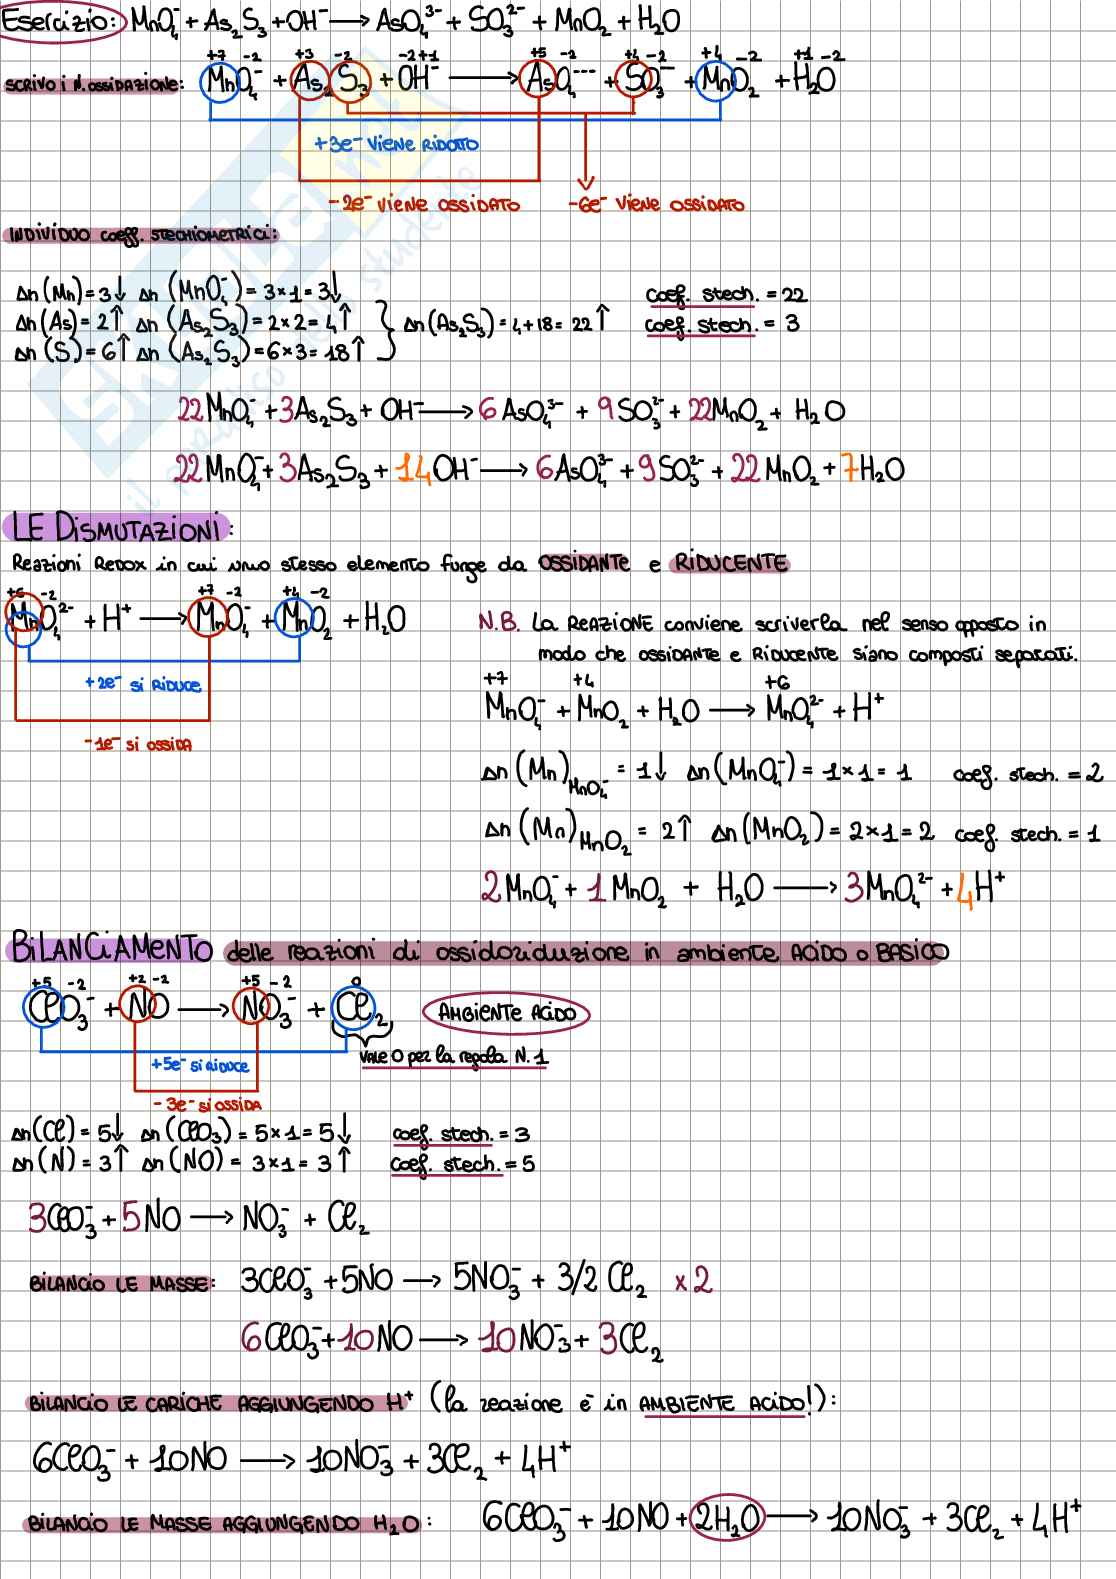 Esercizio: MnO₄⁻ + As₂S₃ + OH⁻ ⟶ AsO₄³⁻ + SO₃²⁻ + MnO₂ + H₂O
+7 -2 +3 -2 -2+1 +5 -2 +4 -2 +4 -2 +1 -2
SCRIVO I N. OSSIDAZIONE: MnO₄⁻ + As₂S₃ + OH⁻ ⟶ AsO₄⁻⁻⁻ + SO₃⁻⁻ + MnO₂ + H₂O
+3e⁻ VIENE RIDOTTO
-2e⁻ VIENE OSSIDATO -6e⁻ VIENE OSSIDATO
INDIVIDUO coeff. STECHIOMETRICI:
Δn(Mn) = 3↓ Δn(MnO₄⁻) = 3×1 = 3↓ coef. stech. = 22
Δn(As) = 2↑ Δn(As₂S₃) = 2×2 = 4↑ } Δn(As₂S₃) = 4+18 = 22↑ coef. stech. = 3
Δn(S) = 6↑ Δn(As₂S₃) = 6×3 = 18↑
22MnO₄⁻ + 3As₂S₃ + OH⁻ ⟶ 6AsO₄³⁻ + 9SO₃²⁻ + 22MnO₂ + H₂O
22MnO₄⁻ + 3As₂S₃ + 14OH⁻ ⟶ 6AsO₄³⁻ + 9SO₃²⁻ + 22MnO₂ + 7H₂O
LE DISMUTAZIONI:
Reazioni REDOX in cui uno stesso elemento funge da OSSIDANTE e RIDUCENTE
+6 -2 +7 -2 +4 -2
MnO₄²⁻ + H⁺ ⟶ MnO₄⁻ + MnO₂ + H₂O
+2e⁻ SI RIDUCE
-1e⁻ SI OSSIDA
N.B. La REAZIONE conviene scriverla nel senso opposto in
modo che OSSIDANTE e RIDUCENTE siano composti separati.
+7 +4 +6
MnO₄⁻ + MnO₂ + H₂O ⟶ MnO₄²⁻ + H⁺
Δn(Mn)MnO₄⁻ = 1↓ Δn(MnO₄⁻) = 1×1 = 1 coef. stech. = 2
Δn(Mn)MnO₂ = 2↑ Δn(MnO₂) = 2×1 = 2 coef. stech. = 1
2MnO₄⁻ + 1MnO₂ + H₂O ⟶ 3MnO₄²⁻ + 4H⁺
BILANCIAMENTO delle reazioni di ossidoriduzione in ambiente ACIDO o BASICO
+5 -2 +2 -2 +5 -2 0
ClO₃⁻ + NO ⟶ NO₃⁻ + Cl₂ AMBIENTE ACIDO
VALE 0 per la regola N.1
+5e⁻ SI RIDUCE
-3e⁻ SI OSSIDA
Δn(Cl) = 5↓ Δn(ClO₃) = 5×1 = 5↓ coef. stech. = 3
Δn(N) = 3↑ Δn(NO) = 3×1 = 3↑ coef. stech. = 5
3ClO₃⁻ + 5NO ⟶ NO₃⁻ + Cl₂
BILANCIO LE MASSE: 3ClO₃⁻ + 5NO ⟶ 5NO₃⁻ + 3/2 Cl₂ ×2
6ClO₃⁻ + 10NO ⟶ 10NO₃⁻ + 3Cl₂
BILANCIO LE CARICHE AGGIUNGENDO H⁺ (la reazione è in AMBIENTE ACIDO!):
6ClO₃⁻ + 10NO ⟶ 10NO₃⁻ + 3Cl₂ + 4H⁺
BILANCIO LE MASSE AGGIUNGENDO H₂O: 6ClO₃⁻ + 10NO + 2H₂O ⟶ 10NO₃⁻ + 3Cl₂ + 4H⁺